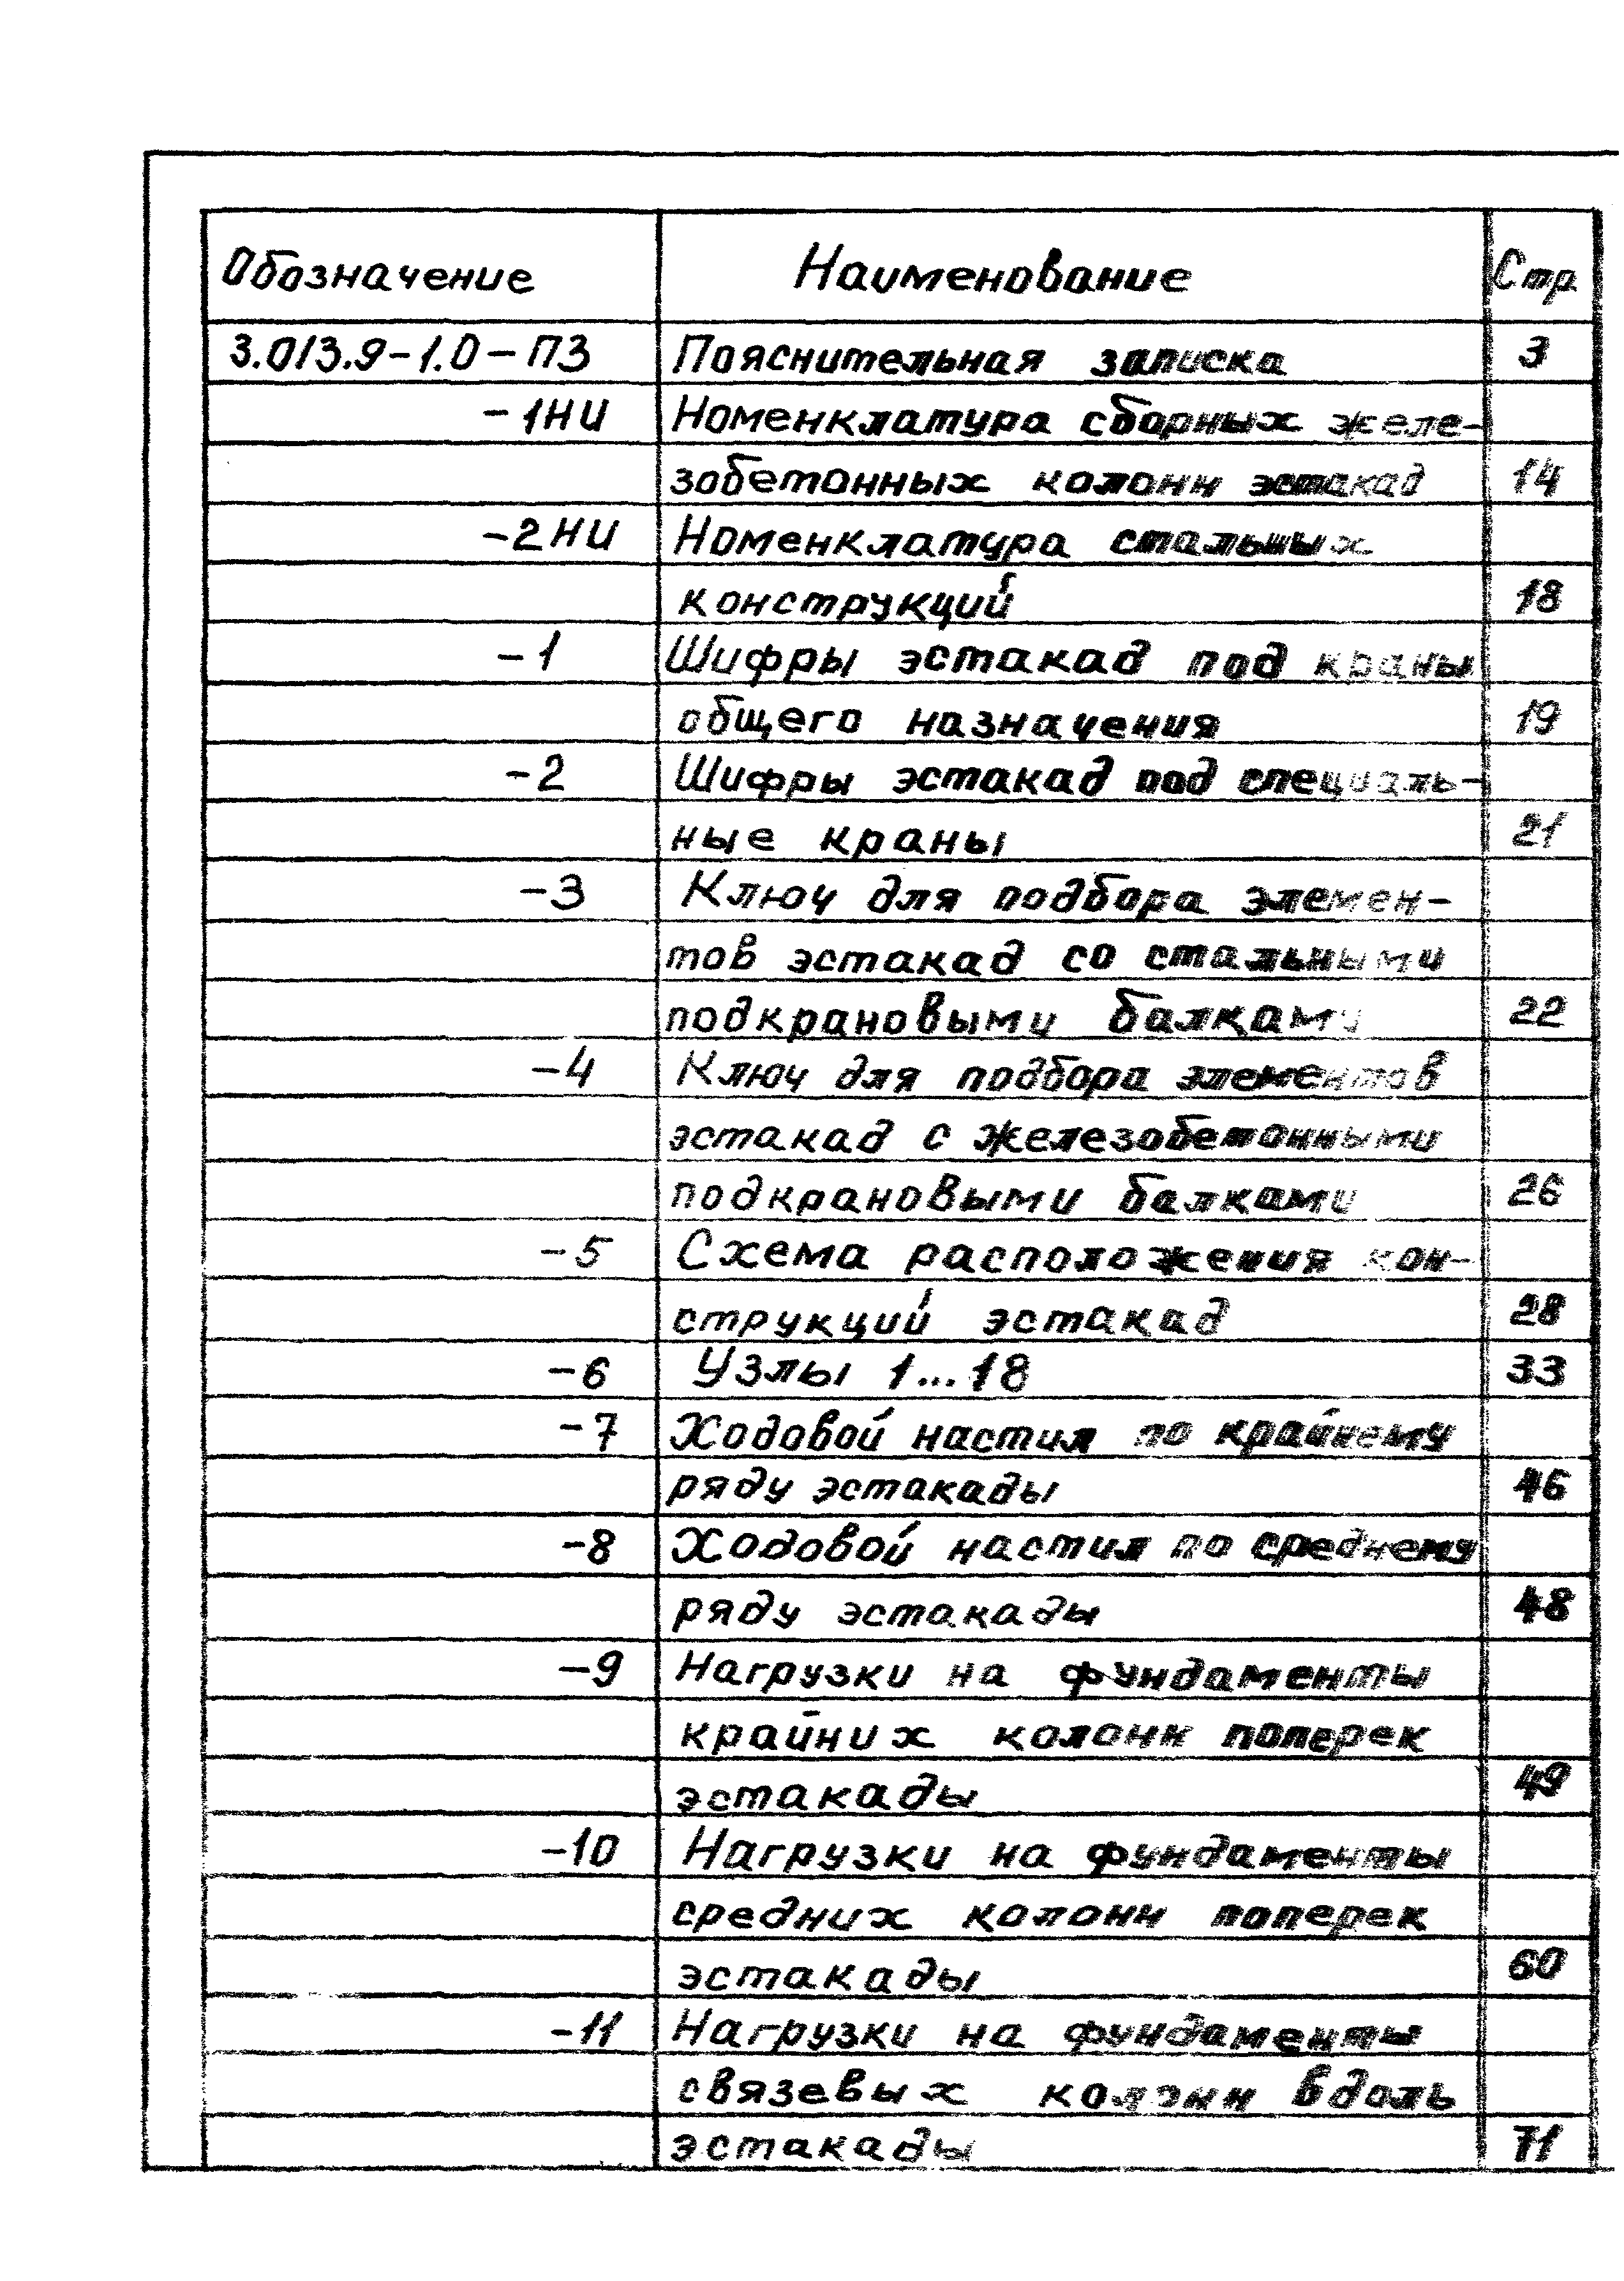 Обозначение Наименование Стр
3.013.9-1.0-ПЗ Пояснительная записка 3
-1НИ Номенклатура сборных желе-
зобетонных колонн эстакад 14
-2НИ Номенклатура стальных
конструкций 18
-1 Шифры эстакад под краны
общего назначения 19
-2 Шифры эстакад под специаль-
ные краны 21
-3 Ключ для подбора элемен-
тов эстакад со стальными
подкрановыми балками 22
-4 Ключ для подбора элементов
эстакад с железобетонными
подкрановыми балками 26
-5 Схема расположения кон-
струкций эстакад 28
-6 Узлы 1...18 33
-7 Ходовой настил по крайнему
ряду эстакады 46
-8 Ходовой настил по среднему
ряду эстакады 48
-9 Нагрузки на фундаменты
крайних колонн поперек
эстакады 49
-10 Нагрузки на фундаменты
средних колонн поперек
эстакады 60
-11 Нагрузки на фундаменты
связевых колонн вдоль
эстакады 71